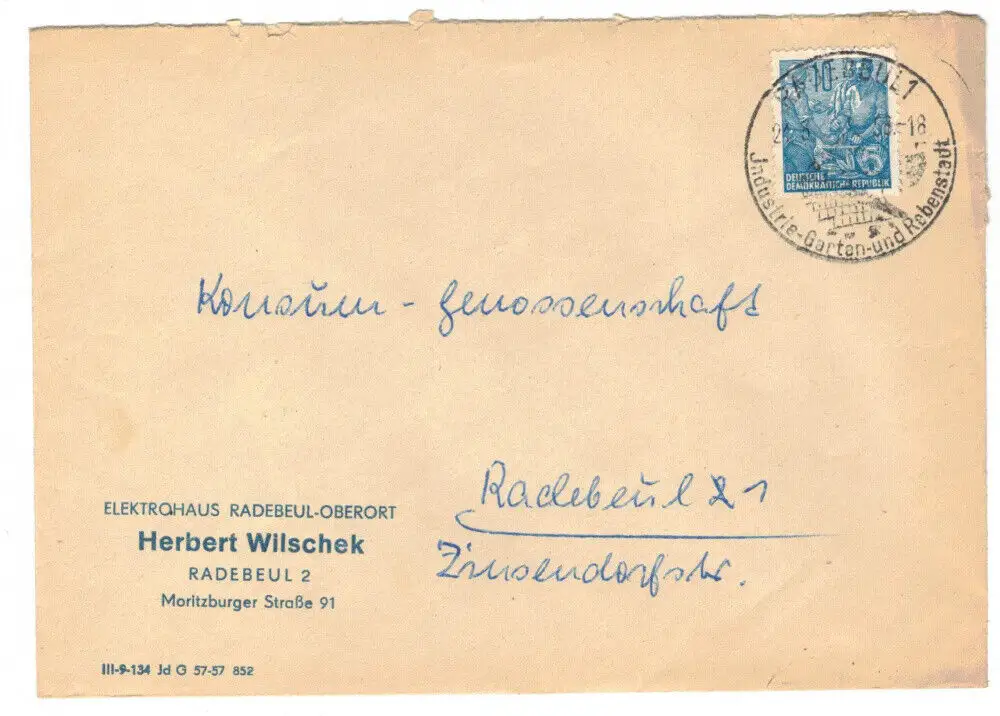 10
RADEBEUL 1
-18
5
DEUTSCHE
DEMOKRATISCHE REPUBLIK
Jndustrie-Garten-und Rebenstadt
Konsum - Genossenschaft
Radebeul 1
Zinsendorfstr.
ELEKTROHAUS RADEBEUL-OBERORT
Herbert Wilschek
RADEBEUL 2
Moritzburger Straße 91
III-9-134 Jd G 57-57 852